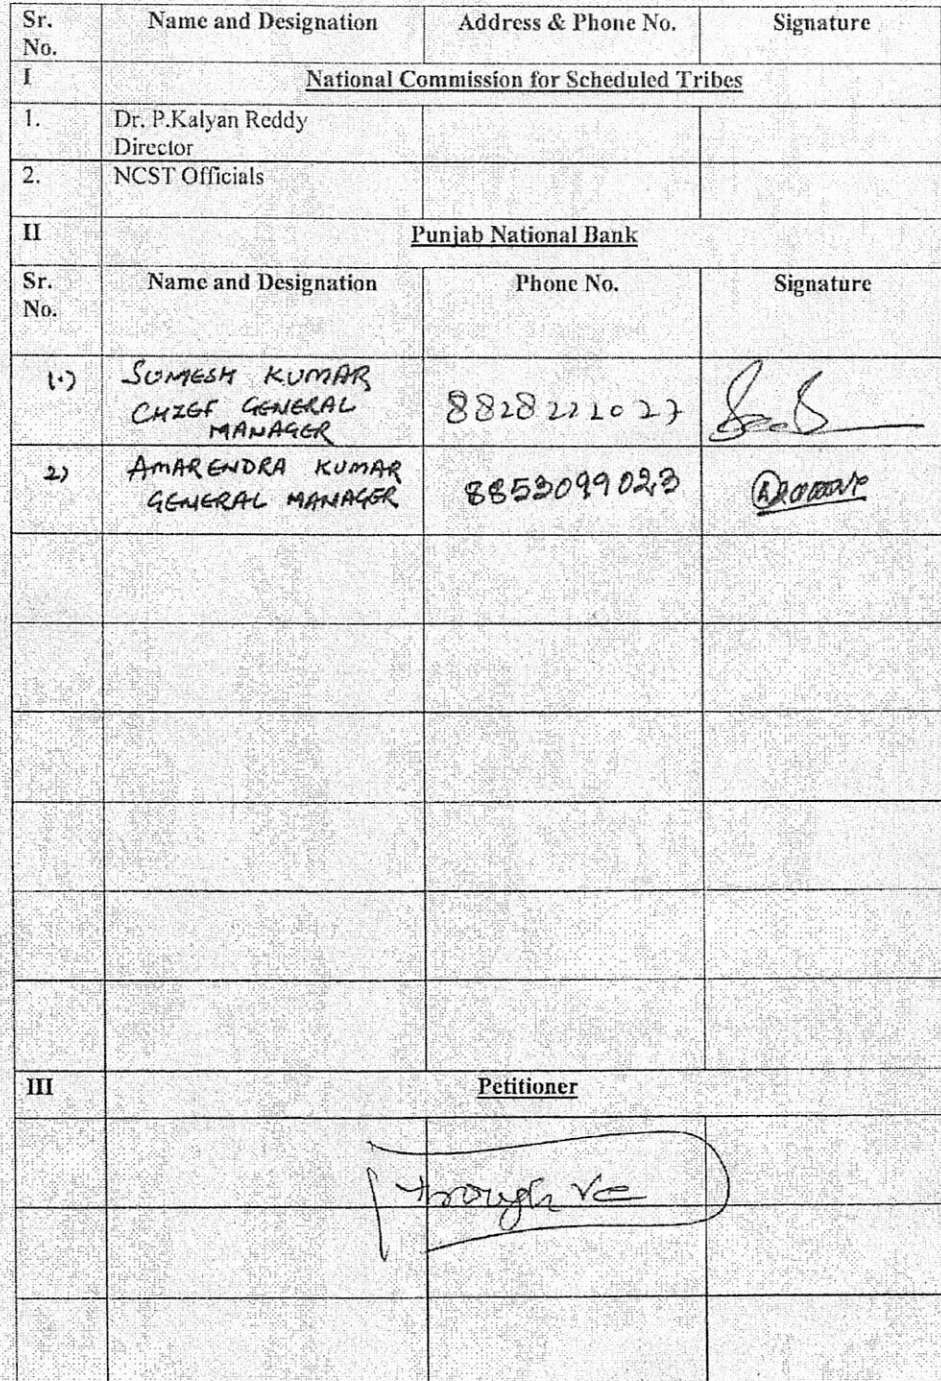 Sr. No. Name and Designation Address & Phone No. Signature
I National Commission for Scheduled Tribes
1. Dr. P.Kalyan Reddy
Director
2. NCST Officials
II Punjab National Bank
Sr. No. Name and Designation Phone No. Signature
1.) SUMESH KUMAR
CHIEF GENERAL
MANAGER
8828221027
2) AMARENDRA KUMAR
GENERAL MANAGER
8853099023
III Petitioner
Through VC